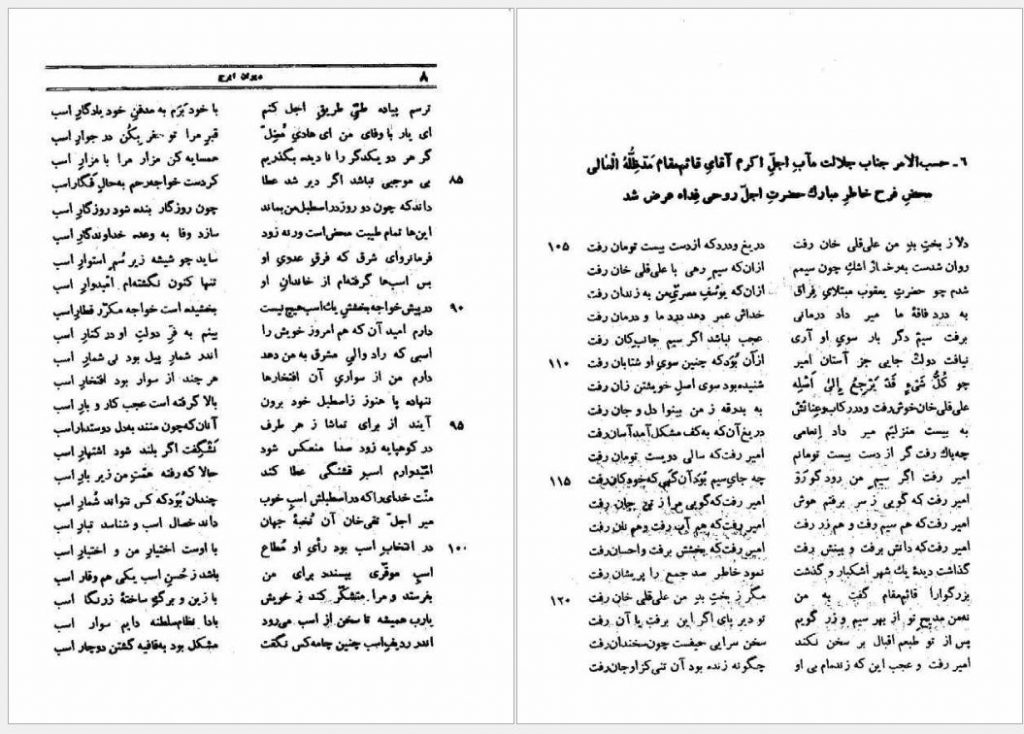 ۸ دیوان ایرج
ترسم پیاده طیّ طریقِ اجل کنم با خود بَرَم به مدفنِ خود یادگارِ اسب
ای یار با وفای من ای هادیِ قبرِ مرا تو حفر بِکُن در جوارِ اسب
گر هر دو یکدگر را نادیده بگذریم همسایه کن مزار مرا با مزارِ اسب
۸۵ بی موجبی نباشد اگر دیر شد عطا کردست خواجه رحم به حالِ فگارِ اسب
داند که چون دو روز در اسطبل من بماند چون روزگار بنده شود روزگارِ اسب
این‌ها تمام طیبت محض است ورنه زود سازد وفا به وعده خداوندگارِ اسب
فرمانروای شرق که فرقِ عدویِ او ساید چو شیشه زیر سُمِ استوارِ اسب
بس اسب‌ها گرفته‌ام از خاندانِ او تنها کنون نگشته‌ام امّیدوارِ اسب
۹۰ در پیش خواجه بخشش یك اسب هیچ نیست بخشیده است خواجه مکرّر قطارِ اسب
دارم امید آن که هم امروز خویش را بینم به فرّ دولتِ او در کنارِ اسب
اسبی که راد والیِ مشرق به من دهد اندر شمارِ پیل بود نی شمارِ اسب
دارم من از سواریِ آن افتخارها هر چند از سوار بود افتخارِ اسب
ننهاده پا هنوز ز اسطبل خود برون بالا گرفته است عجب کار و بارِ اسب
۹۵ آیند از برای تماشا ز هر طرف آنان که چون منند به دل دوستدارِ اسب
در کوهپایه زود صدا منعکس شود نشگِفت اگر بلند شود اشتهارِ اسب
امّیدوارم اسبِ قشنگی عطا کند حالا که رفته همّتِ من زیرِ بارِ اسب
منّت خدای را که در اسطبلش اسبِ خوب چندان بُوَد که کس نتواند شمارِ اسب
میر اجلّ تقی خان آن نُخبۀ جهان داند خصال اسب و شناسد تبارِ اسب
۱۰۰ در انتخابِ اسب بود رأیِ او مُطاع با اوست اختیارِ من و اختیارِ اسب
اسبِ موقّری بپسندد برای من باشد ز حُسنِ اسب یکی هم وقارِ اسب
بفرستد و مرا متشکّر کند ز خویش با زین و برگِ ساختۀ زرنگارِ اسب
یارب همیشه تا سخن از اسب می‌رود بادا نظام‌سلطنه دایم سوارِ اسب
اندر ردیف اسب چنین چامه کس نگفت مشکل بود به قافیه گشتن دوچارِ اسب
۶ ـ حسب‌الامر جناب جلالت مآب اجلّ اکرم آقای قائم‌مقام مَدَّظِلُّهُ الْعالی
محضِ فرح خاطرِ مبارك حضرتِ اجلّ روحی فِداه عرض شد
۱۰۵ دلا ز بختِ بدِ من علی‌قلی خان رفت دریغ و درد که از دست بیست تومان رفت
روان شدست به رخ از اشك چون سیمم ازان که سیم رهی با علی‌قلی خان رفت
شدم چو حضرتِ یعقوب مبتلای فراق ازان که یوسُفِ مصریّ من به زندان رفت
به دردِ فاقۀ ما میر داد درمانی خداش عمر دهد دردِ ما و درمان رفت
برفت سیم دگر بار سویِ او آری عجب نباشد اگر سیم جانبِ کان رفت
۱۱۰ نیافت دولت جایی جز آستان امیر ازآن بُوَد که چنین سوی او شتابان رفت
چو کُلُّ شَیْءٍ قَدْ یَرْجِعُ اِلیٰ اَصْلِه شنیده‌بود سوی اسلِ خویشتن زان رفت
علی‌قلی خان خوش رفت و در رکاب و عِنانش به بدرقه ز من بینوا دل و جان رفت
به بیست منزلیم میر داد اِنعامی دریغ آن که به کف مشکل آمد آسان رفت
چه باك رفت گر از دست بیست تومانم امیر رفت که سالی دویست تومان رفت
۱۱۵ امیر رفت اگر سیم من رود گو رَوْ چه جایِ سیم بُوَد آن گهی که خود کان رفت
امیر رفت که گویی ز سر برفتم هوش امیر رفت که گویی مرا ز تن جان رفت
امیر رفت که هم سیم رفت و هم زر رفت امیر رفت که هم آب رفت و هم نان رفت
امیر رفت که دانش برفت و بینش رفت امیر رفت که بخشش برفت و احسان رفت
گذاشت دیدۀ یك شهر اشکبار و گذشت نمود خاطر صد جمع را پریشان رفت
۱۲۰ بزرگوارا قائم‌مقام گفت به من مگر ز بختِ بدِ من علی‌قلی خان رفت
نه من مدیحِ تو از بهر سیم و زر گویم تو دیر پای اگر این برفت یا آن رفت
پس از تو طبعم اقبال بر سخن نکند سخن سرایی حیفست چون سخندان رفت
امیر رفت و عجب این که زنده‌ام بی او چگونه زنده بود آن تنی کزاو جان رفت